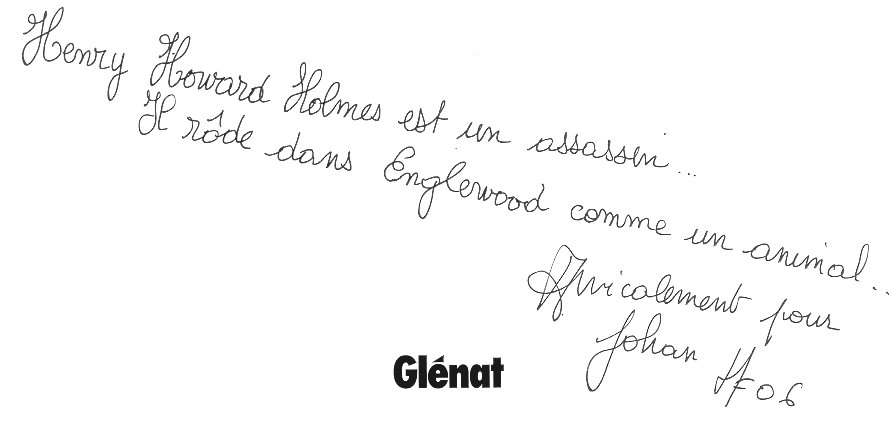 Henry Howard Holmes est un assassin...
Il rôde dans Englewood comme un animal...
Amicalement pour
Johan HF06
Glénat